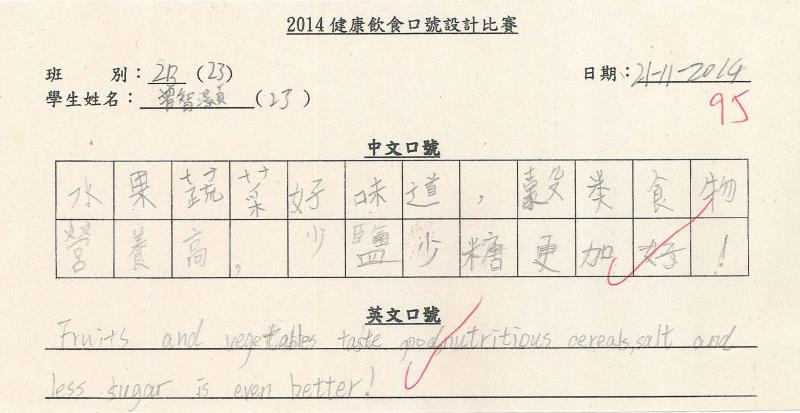 2014健康飲食口號設計比賽
班 別：2B (23)
學生姓名： 智灝 (23)
日期：21-11-2014
95
中文口號
水果蔬菜好味道，穀类食物
營養高，少鹽少糖更加好！
英文口號
Fruits and vegetables taste good, nutritious cereals, salt and
less sugar is even better!